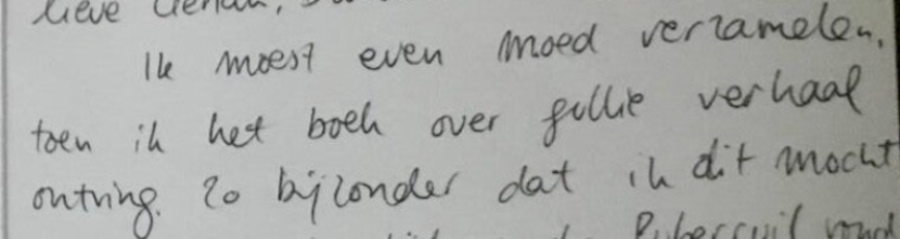 Lieve
Ik moest even moed verzamelen,
toen ik het boek over jullie verhaal
ontving. Zo bijzonder dat ik dit mocht